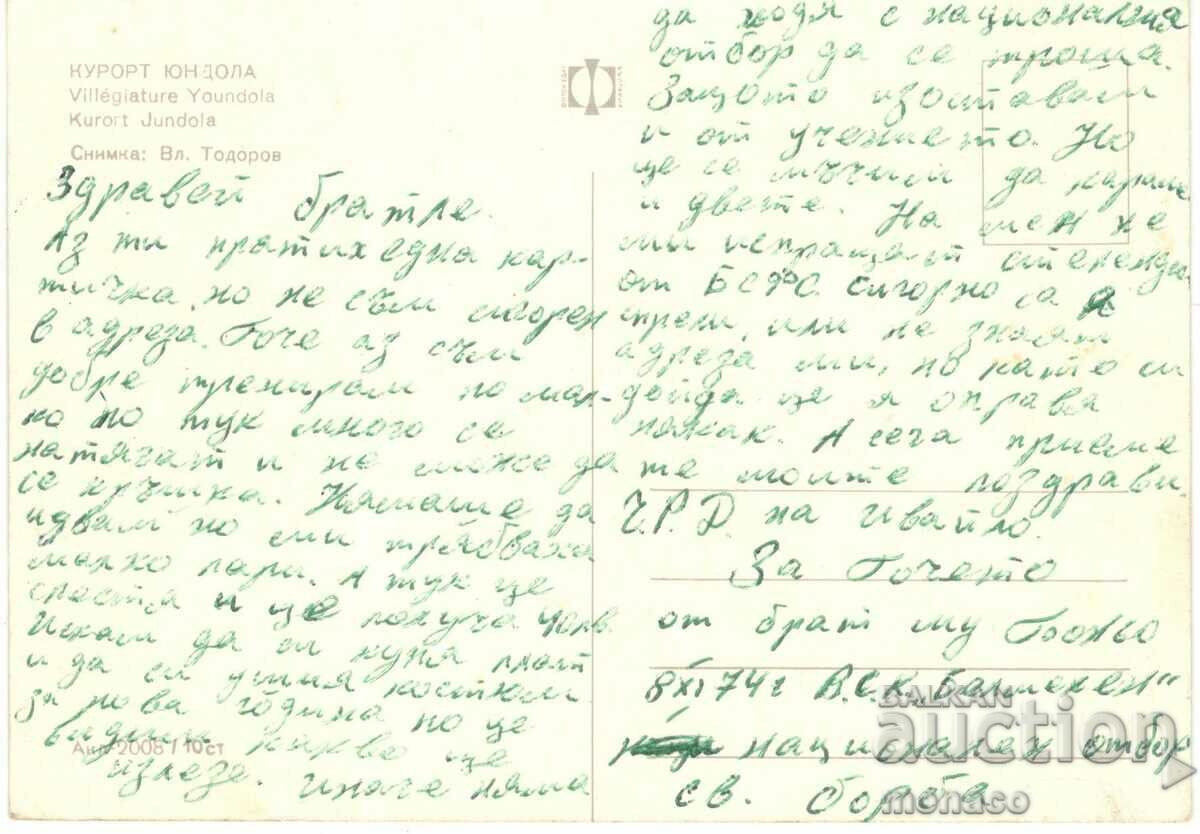 КУРОРТ ЮНДОЛА
Villégiature Youndola
Kurort Jundola
Снимка: Вл. Тодоров
Здравей братле.
Аз ти пратих една кар-
тичка, но не съм сигорен
в адреза. Гоче аз съм
добре тренирам по мал-
ко но тук много се
натягат и не може да
се кръшка. Нямаше да
идвам но ми трябваха
малко пари. А тук ще
спестя и ще получа 40лв
Искам да си купя плат
и да си ушия костюм
за нова година но ще
видим какво ще
излезе. Иначе няма
да ходя с националния
отбор да се троша.
Защото изоставам
и от учението. Но
ще се мъчим да караме
и двете. На мен не
ми испращат стипенди
от БСФС. Сигорно са
спрели, или не знаят
адреза ми, но като си
дойда ще я оправя
някак. А сега приеме
те моите поздрави.
Ч.Р.Д на Ивайло.
За Гочето
от брат му Божо
8 XI 74 г В.С.К. Балмекен"
национален отбор
св. борба
Акл-2008 / 10 ст
BALKAN
auction
monaco